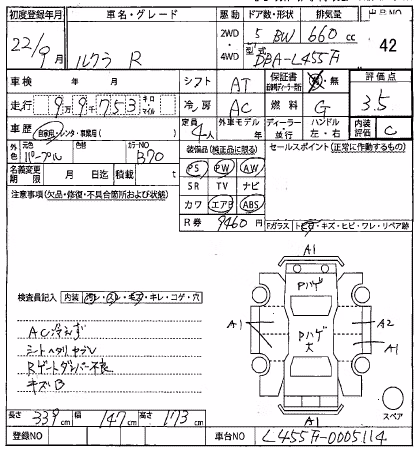 初度登録年月 車名・グレード 駆動 ドア数・形状 排気量 出品NO
22/9月 ルクラ R 2WD・4WD 5 BW 660cc 42
型式 DBA-L455F
車検 年 月 シフト AT 保証書 有・無 評価点
走行 9万9千753 キロ マイル 冷房 AC 燃料 G 3.5
車歴 自家用・レンタ・事業用( ) 定員 4人 外車モデル 年 ディーラー・並行 ハンドル 左・右 内装評価 C
外色 元色 パープル 色替 カラーNO B70 装備品(純正品に限る) セールスポイント(正常に作動するもの)
名義変更期限 月 日迄 積載 t PS PW AW
注意事項(欠品・修復・不具合箇所および状態) SR TV ナビ
カワ エアB ABS
R券 9460円 Fガラス トビ石・キズ・ヒビ・ワレ・リペア跡
A1
検査員記入 内装 汚レ・スレ・キズ・キレ・コゲ・穴
Pハゲ
A1 Pハゲ大 A2
A1
AC冷えず
シートヘタリ、セブレ
Rゲートダンパー不良
キズB
A1 スペア
長さ 339cm 幅 147cm 高さ 173cm
登録NO 車台NO L455F-0005114